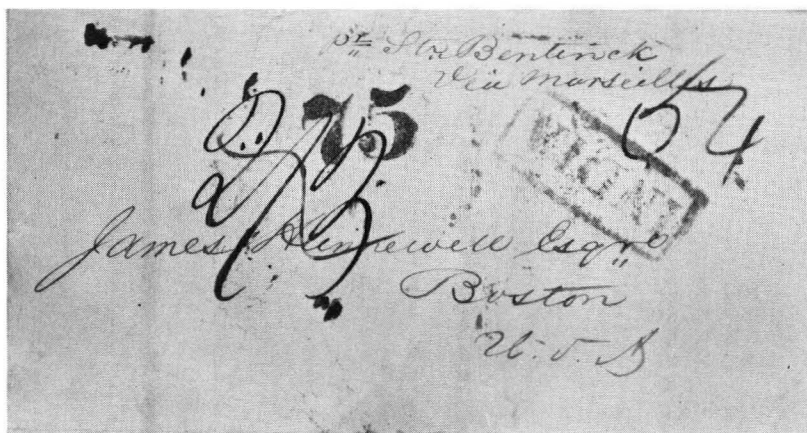 pr Str Bentinck
Via Marseilles
75
2/3
54
INDIA
James Hunnewell Esqre
Boston
U.S.A